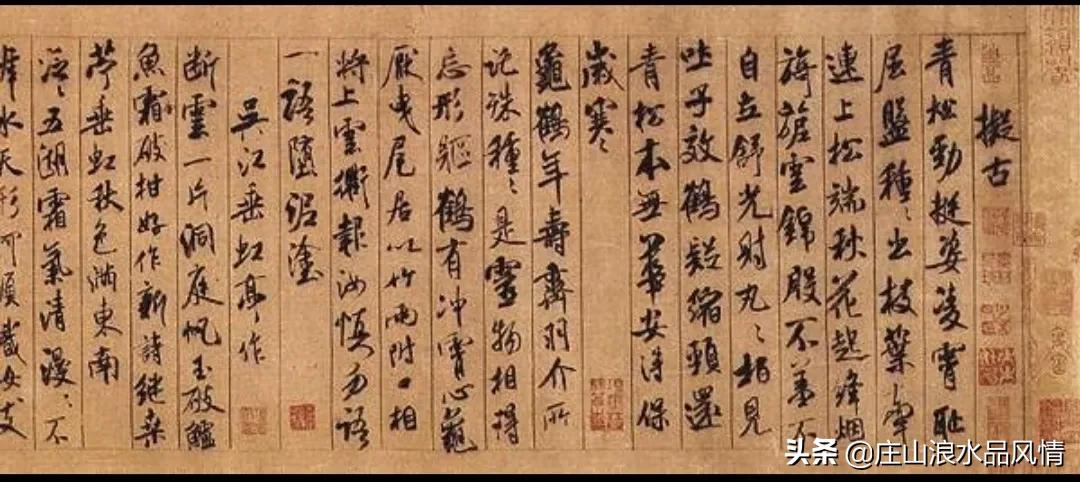 擬古
青松勁挺姿凌霄耻
屈盤種〻出枝葉牽
連上松端秋花起絳烟
旖旎雲錦殷不羞不
自立舒光射丸〻柏見
吐子效鶴疑縮頸還
青松本無華安得保
歲寒
龜鶴年壽齊羽介所
託殊種〻是靈物相得
忘形軀鶴有沖霄心龜
厭曳尾居以竹兩附口相
將上雲衢報汝慎勿語
一語墮泥塗
吳江垂虹亭作
断雲一片洞庭帆玉破鱸
魚霜破柑好作新詩繼桑
苧垂虹秋色滿東南
泛〻五湖霜氣清漫〻不
辨水天形何須織女支
头条 @庄山浪水品风情